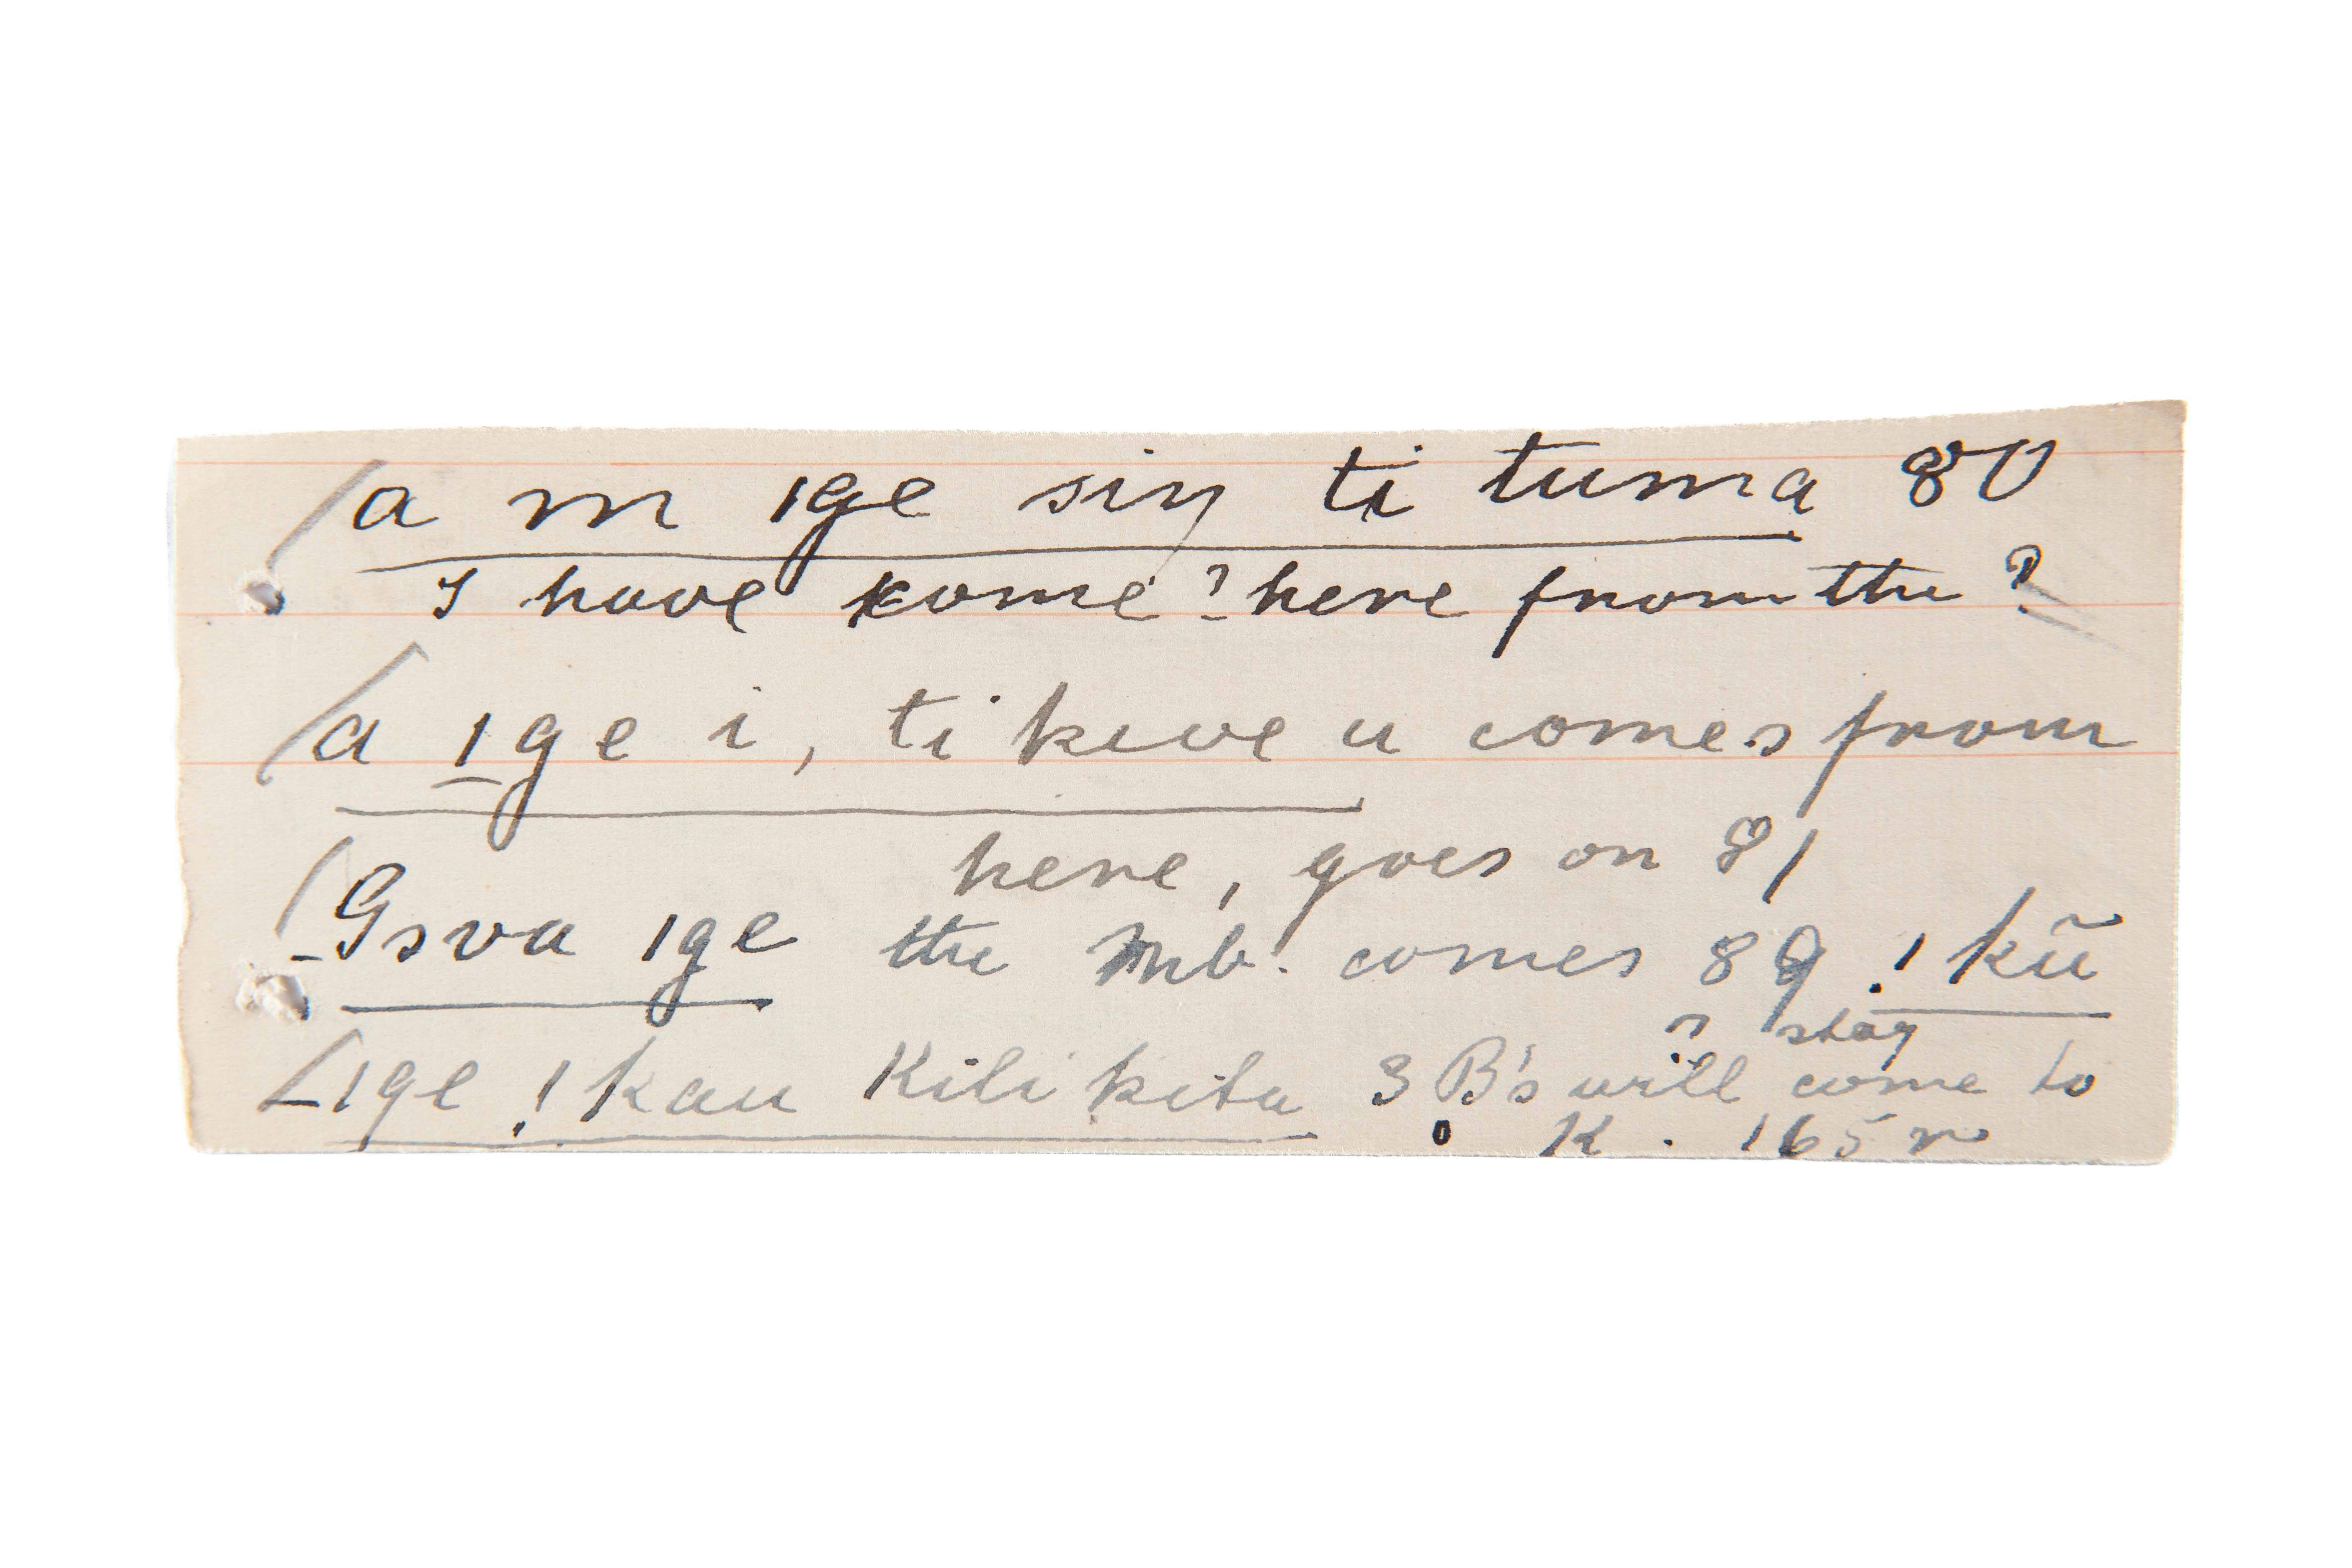 a m ǀge siŋ ti tuma 80
I have come? here from the ?
a ǀge i, ti kewe u comes from
here, goes on 81
Gsva ǀge the Mb. comes 89 ! kũ
? stay
ǀge ! kau Kilikita 3 B's will come to
K. 165 r